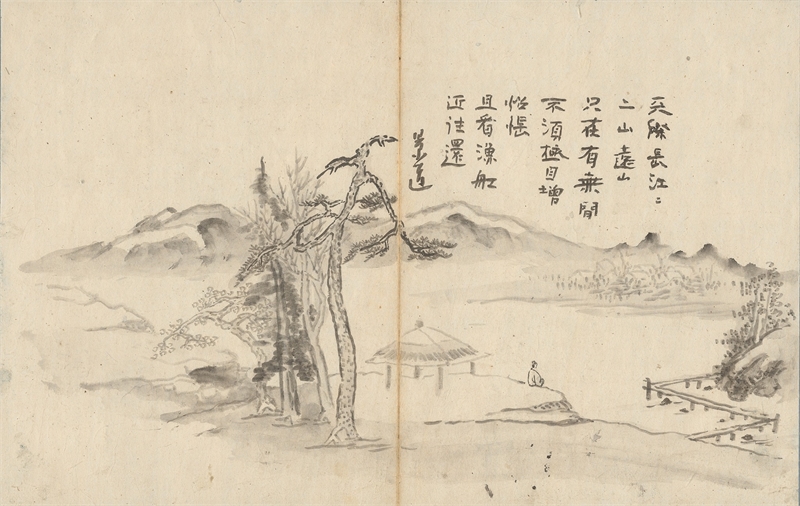 天際長江〻
上山遠山
只在有無間
不須極目增
惆悵
且看漁舡
近往還